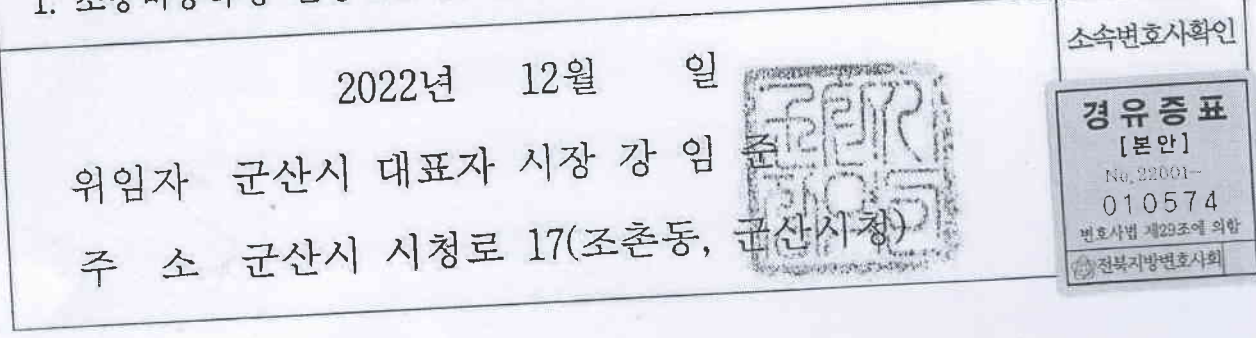 1.
소속변호사확인
2022년 12월 일
위임자 군산시 대표자 시장 강 임 준
주 소 군산시 시청로 17(조촌동, 군산시청)
경유증표
[본안]
No. 22001-
010574
변호사법 제29조에 의함
전북지방변호사회